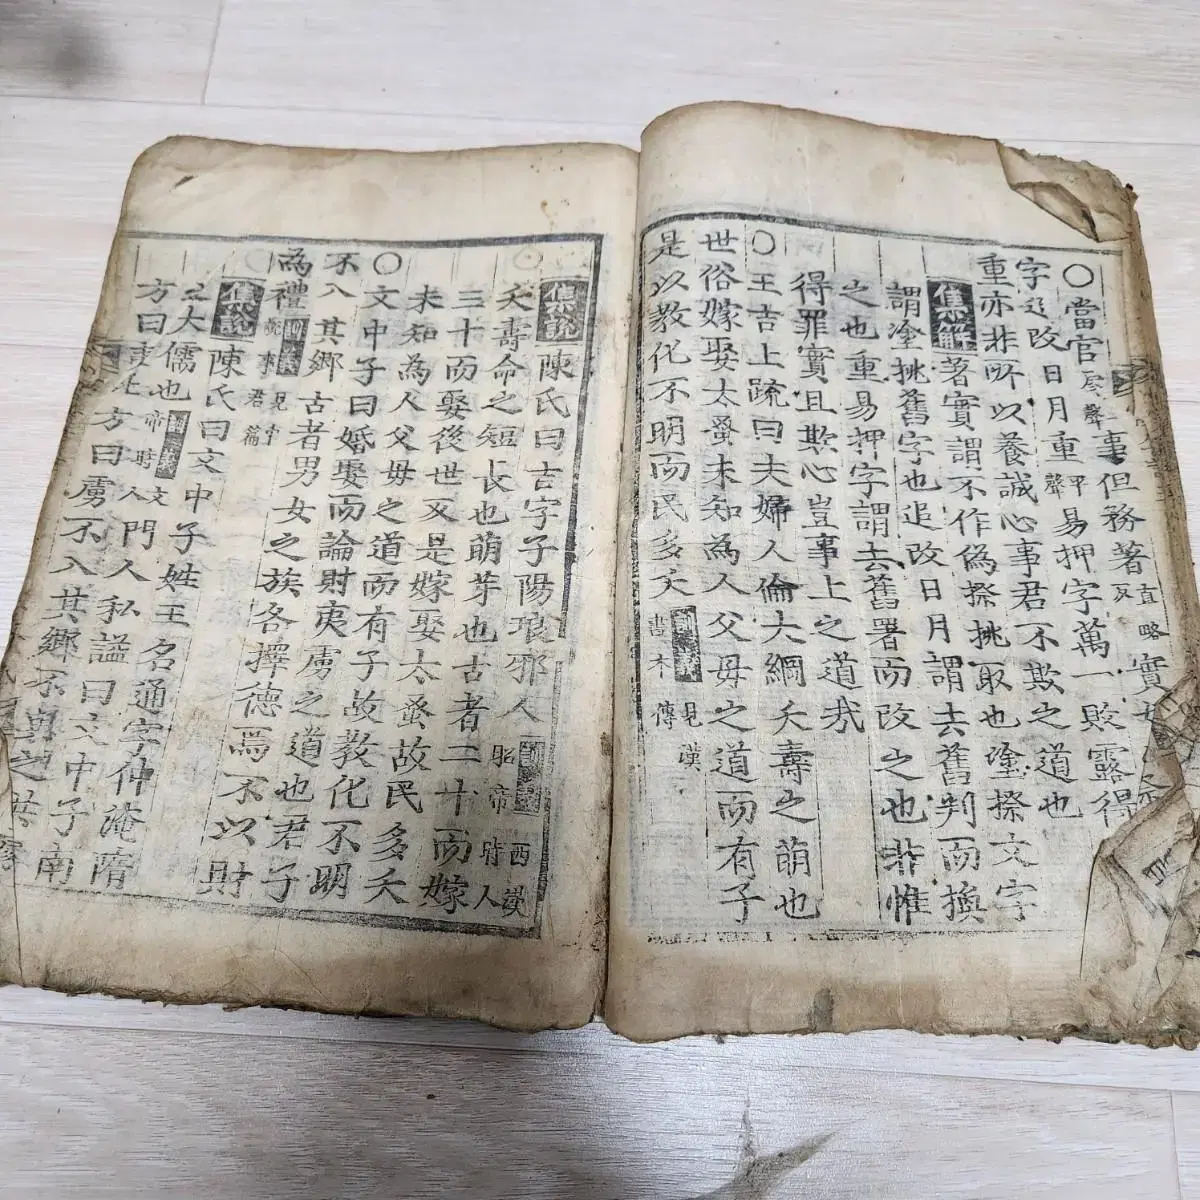 ○當官處聲事但務著直略反實如
字追改日月重平聲易押字萬一敗露得
重亦非所以養誠心事君不欺之道也
集解著實謂不作爲擦挑取也塗擦文字
謂塗挑舊字也追改日月謂去舊判而換
之也重易押字謂去舊署而改之也非惟
得罪實且欺心豈事上之道哉
○王吉上疏曰夫婦人倫大綱夭壽之萌也
世俗嫁娶太蚤未知為人父母之道而有子
是以教化不明而民多夭訓義見漢書本傳
集說陳氏曰吉字子陽琅邪人訓義西漢昭帝時人
夭壽命之短長也萌芽也古者二十而嫁
三十而娶後世反是嫁娶太蚤故民多夭
未知為人父母之道而有子故教化不明
○文中子曰婚娶而論財夷虜之道也君子
不入其鄉古者男女之族各擇德焉不以財
為禮訓義見中說事君篇
集說陳氏曰文中子姓王名通字仲淹隋
之大儒也訓義文帝時人門人私謚曰文中子南
方曰夷北方曰虜不入其鄉不與之共處